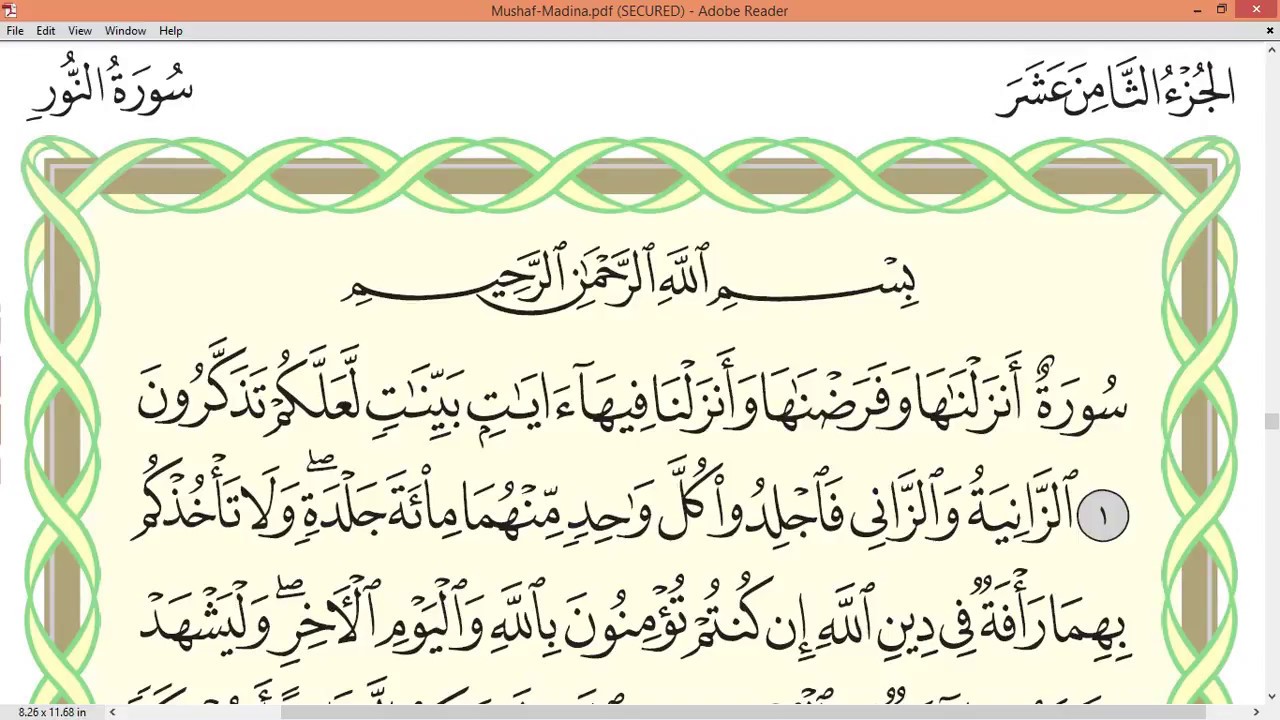 Mushaf-Madina.pdf (SECURED) - Adobe Reader
File Edit View Window Help
الجُزْءُ الثَّامِنَ عَشَرَ
سُورَةُ النُّورِ
بِسْمِ ٱللَّهِ ٱلرَّحْمَٰنِ ٱلرَّحِيمِ
سُورَةٌ أَنزَلْنَٰهَا وَفَرَضْنَٰهَا وَأَنزَلْنَا فِيهَآ ءَايَٰتٍۭ بَيِّنَٰتٍ لَّعَلَّكُمْ تَذَكَّرُونَ
١ ٱلزَّانِيَةُ وَٱلزَّانِى فَٱجْلِدُوا۟ كُلَّ وَٰحِدٍ مِّنْهُمَا مِا۟ئَةَ جَلْدَةٍ ۖ وَلَا تَأْخُذْكُم
بِهِمَا رَأْفَةٌ فِى دِينِ ٱللَّهِ إِن كُنتُمْ تُؤْمِنُونَ بِٱللَّهِ وَٱلْيَوْمِ ٱلْءَاخِرِ ۖ وَلْيَشْهَدْ
8.26 x 11.68 in